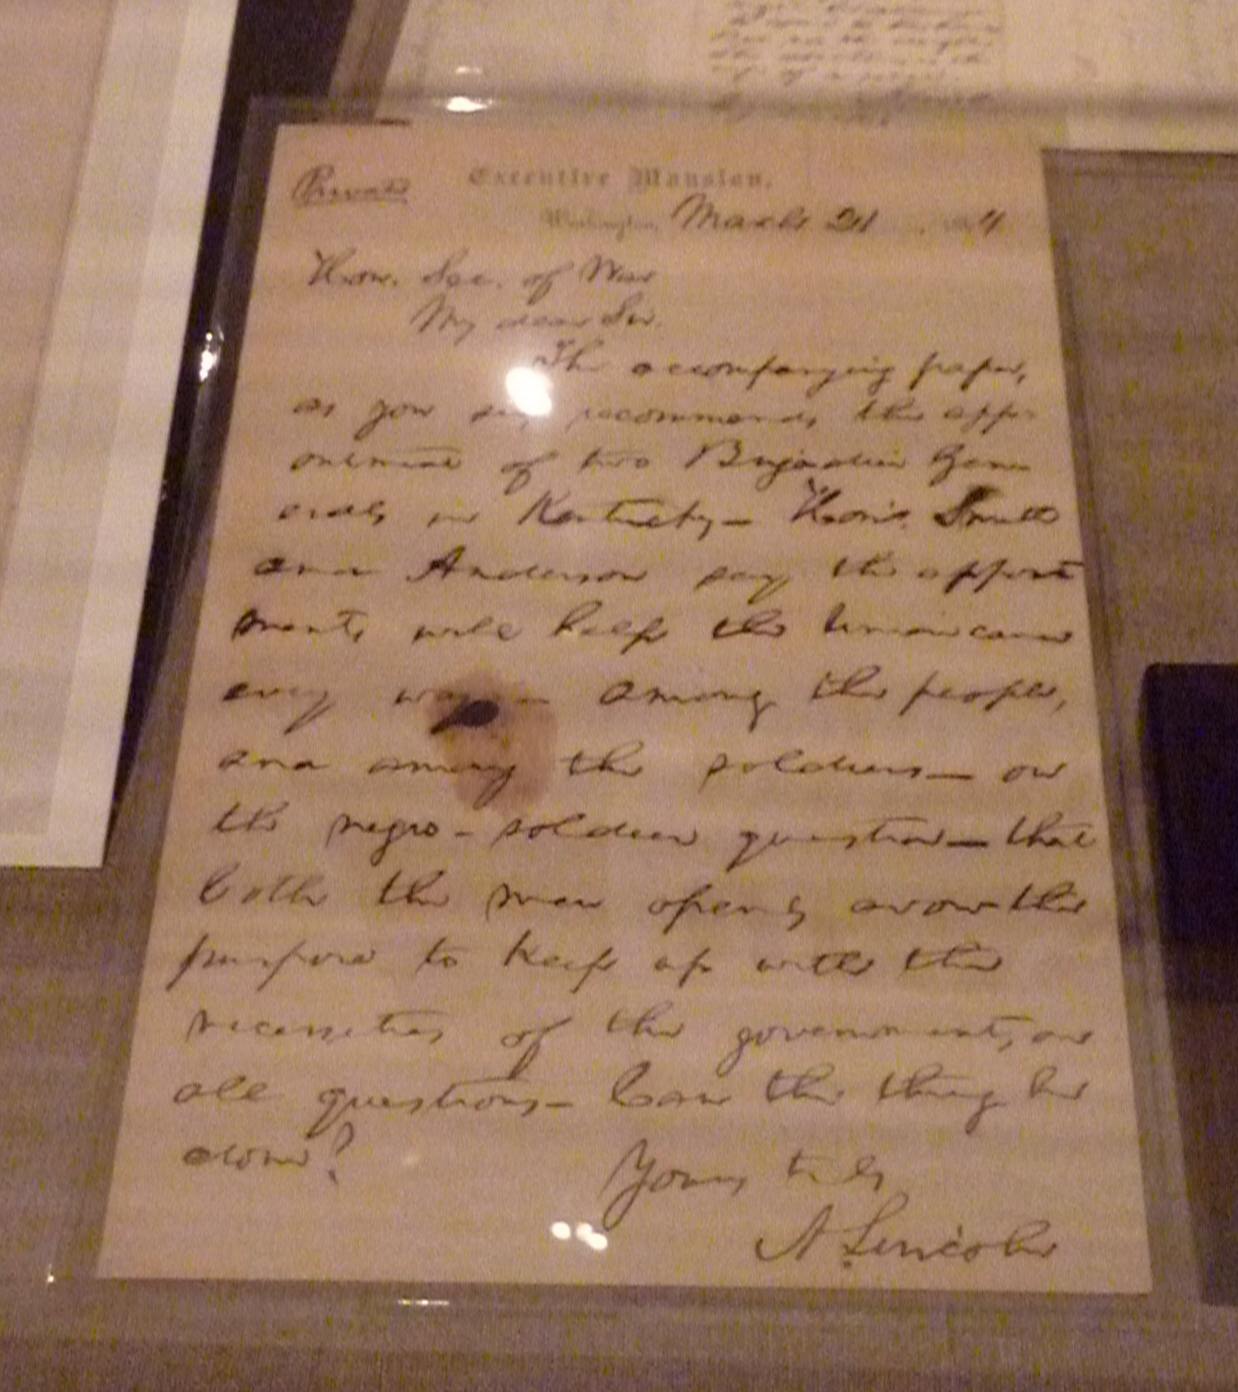 Private
Executive Mansion,
Washington, March 21, 1864
Hon. Sec. of War
My dear Sir.
The accompanying paper,
as you see, recommends the appo-
intment of two Brigadier Gen-
erals in Kentucky— Hon's. Smith
and Anderson say the appoint-
ments will help the Union cause
every way — among the people,
and among the soldiers— on
the negro-soldier question— that
both the men openly avow the
purpose to keep up with the
necessities of the government, on
all questions— Can the thing be
done?
Yours truly
A. Lincoln